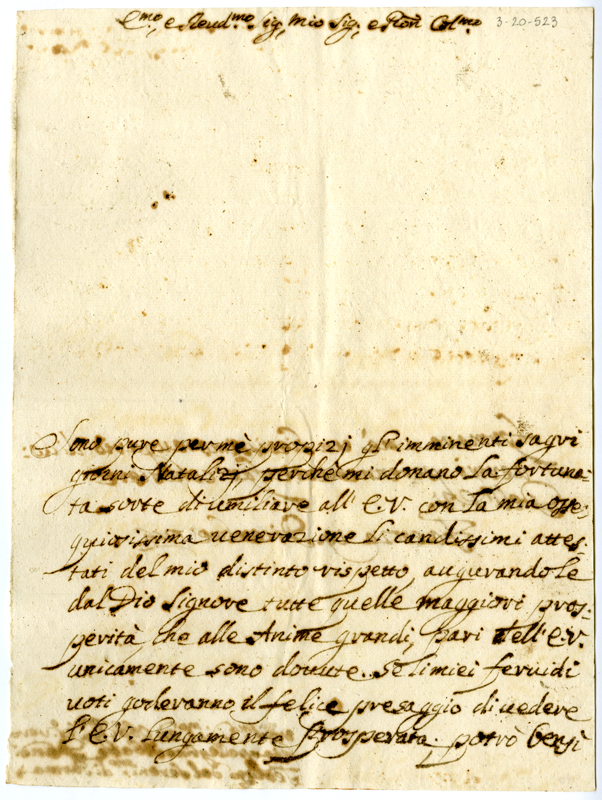 E.mo, e Reud.mo Sig, mio Sig, e Pron Col.mo
3-20-523
Sono pure permè propizj gl'imminenti sagri
giorni Natalizj, perche mi donano la fortuna-
ta sorte di umiliare all' E.V. con la mia osse-
quiosissima uenerazione li candissimi attes-
tati del mio distinto rispetto, augurandole
dal Dio Signore tutte quelle maggiori pros-
perità, che alle Anime grandi, pari dell' E.V.
unicamente sono douute. Se li miei feruidi
uoti goderanno il felice presaggio di uedere
l' E.V. lungamente prosperata, potrò bensi